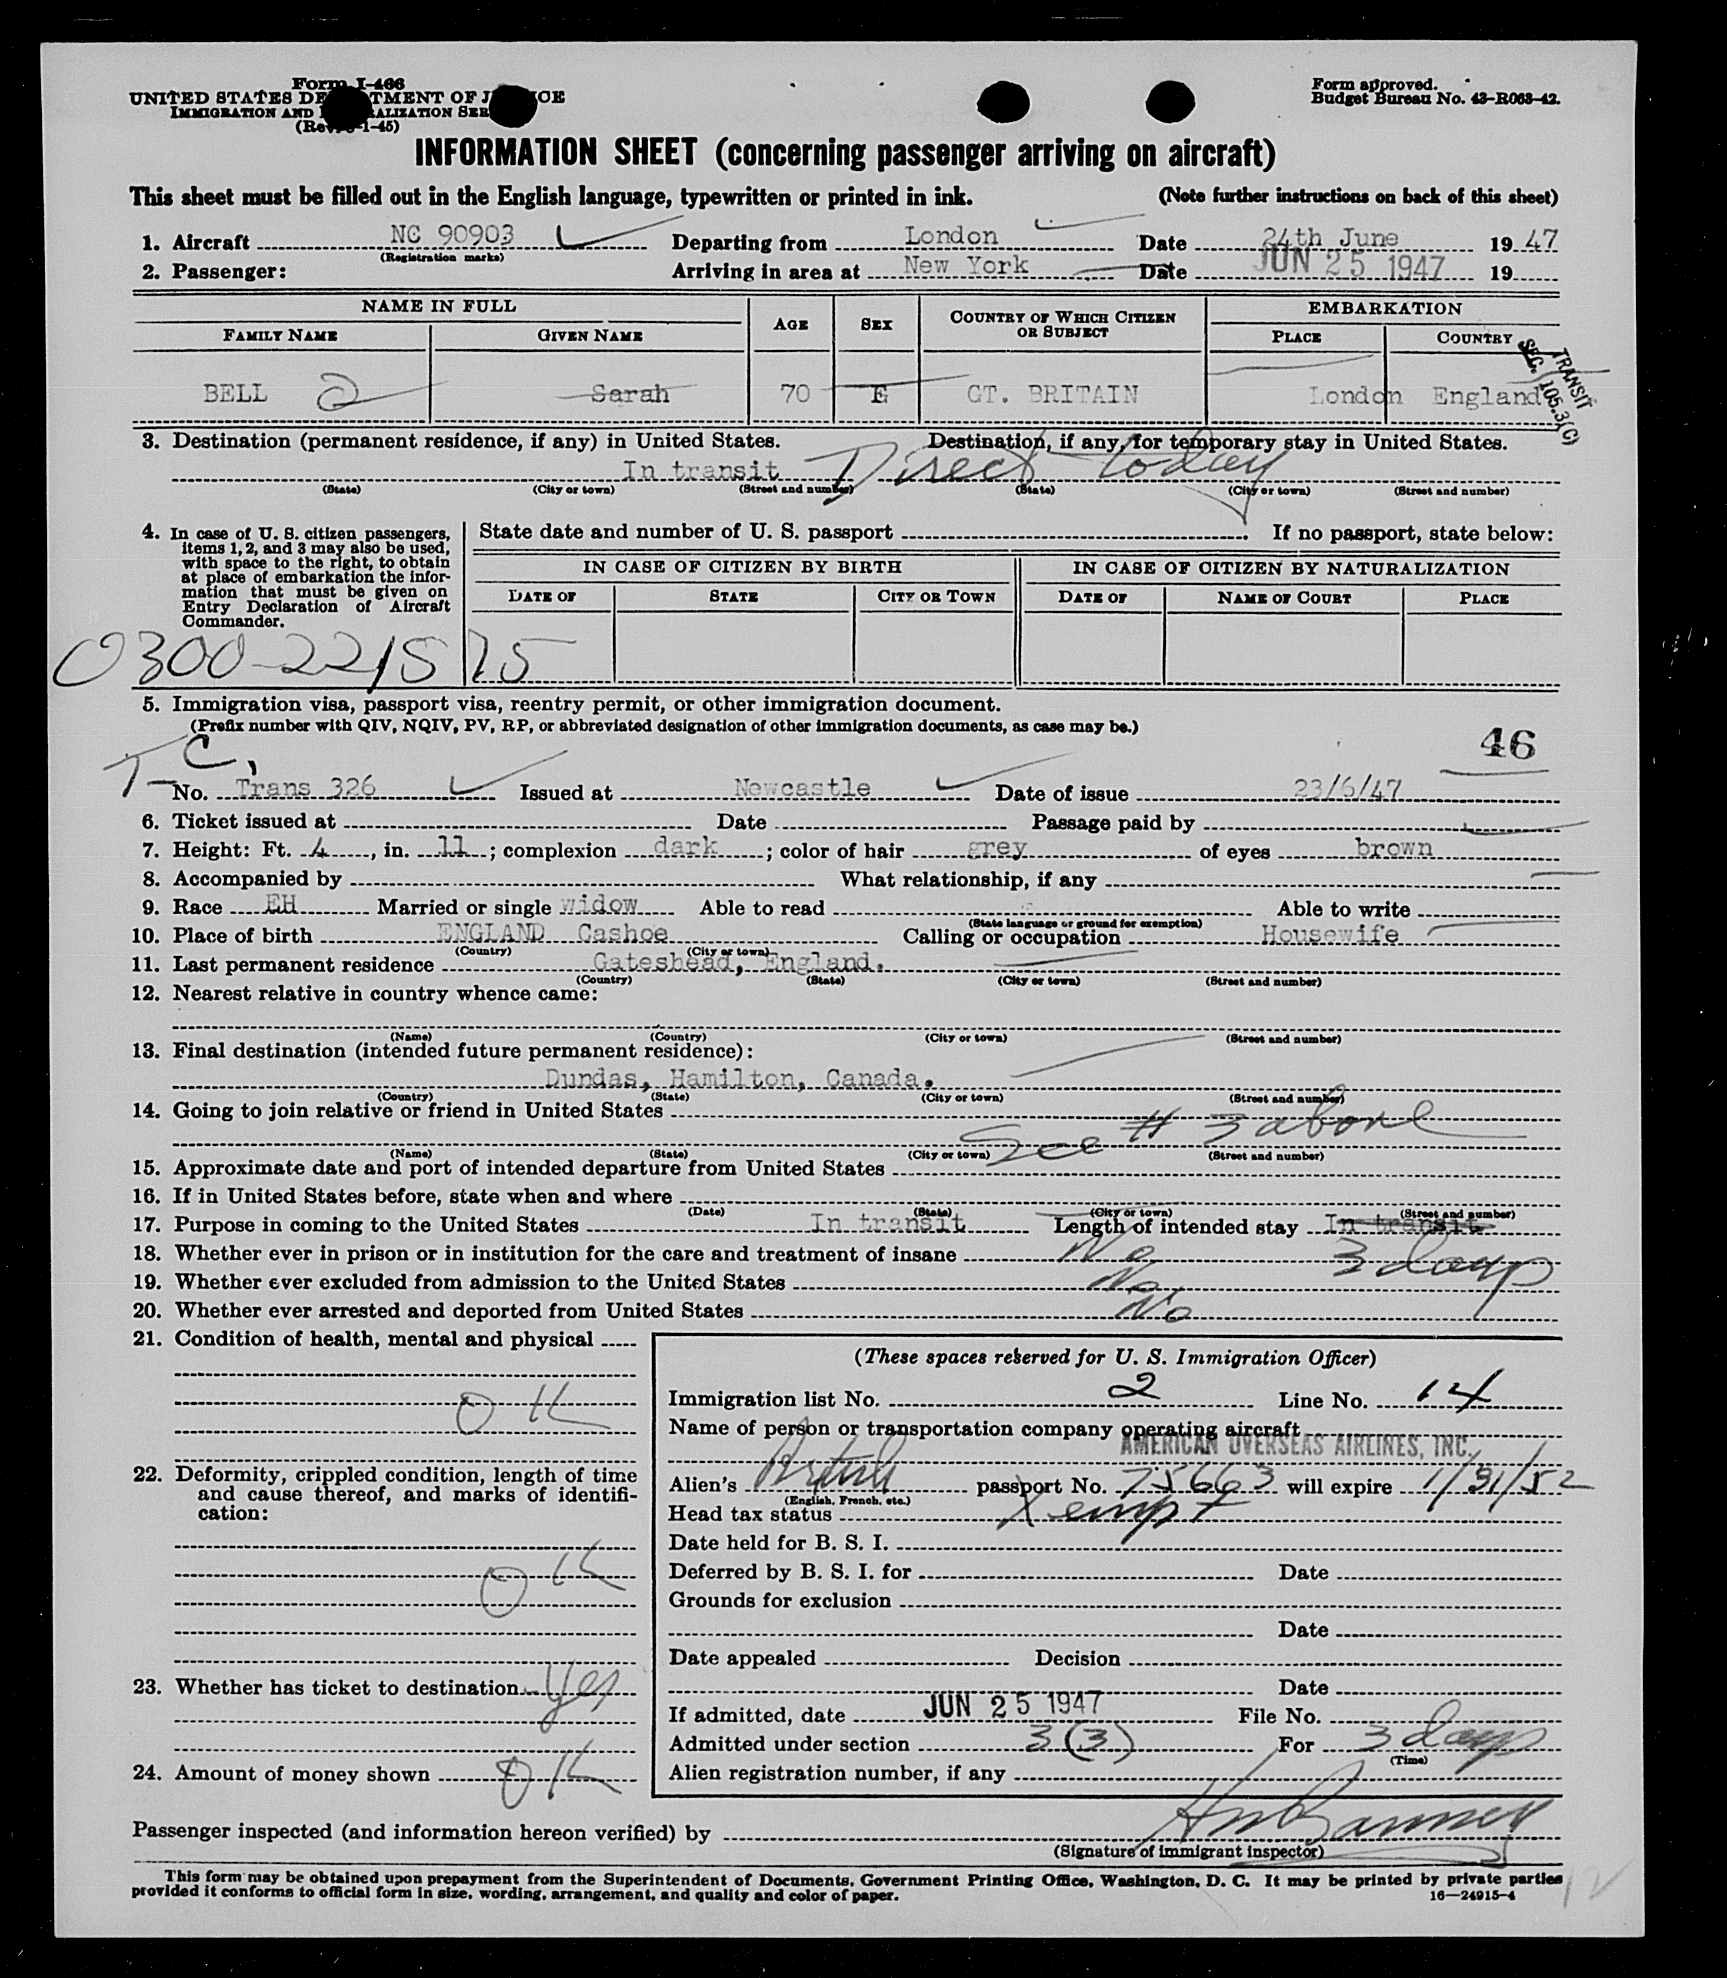 Form I-466
UNITED STATES DE TMENT OF J CE
IMMIGRATION AND ALIZATION SER
(Rev. -1-45)
Form approved.
Budget Bureau No. 43-R063-42.
INFORMATION SHEET (concerning passenger arriving on aircraft)
This sheet must be filled out in the English language, typewritten or printed in ink. (Note further instructions on back of this sheet)
1. Aircraft NC 90903 Departing from London Date 24th June 1947
(Registration marks)
2. Passenger: Arriving in area at New York Date JUN 25 1947 19
NAME IN FULL AGE SEX COUNTRY OF WHICH CITIZEN OR SUBJECT EMBARKATION
FAMILY NAME GIVEN NAME PLACE COUNTRY
TRANSIT
SEC. 105.3(C)
BELL Sarah 70 F GT. BRITAIN London England
3. Destination (permanent residence, if any) in United States. Destination, if any, for temporary stay in United States.
In transit Direct today
(State) (City or town) (Street and number) (State) (City or town) (Street and number)
4. In case of U. S. citizen passengers,
items 1, 2, and 3 may also be used,
with space to the right, to obtain
at place of embarkation the infor-
mation that must be given on
Entry Declaration of Aircraft
Commander.
State date and number of U. S. passport If no passport, state below:
IN CASE OF CITIZEN BY BIRTH IN CASE OF CITIZEN BY NATURALIZATION
DATE OF STATE CITY OR TOWN DATE OF NAME OF COURT PLACE
0300-221515
5. Immigration visa, passport visa, reentry permit, or other immigration document.
(Prefix number with QIV, NQIV, PV, RP, or abbreviated designation of other immigration documents, as case may be.)
46
T.C.
No. Trans 326 Issued at Newcastle Date of issue 23/6/47
6. Ticket issued at Date Passage paid by
7. Height: Ft. 4, in. 11; complexion dark; color of hair grey of eyes brown
8. Accompanied by What relationship, if any
9. Race EH Married or single widow Able to read Able to write
(State language or ground for exemption)
10. Place of birth ENGLAND Cashoe Calling or occupation Housewife
(Country) (City or town)
11. Last permanent residence Gateshead, England.
(Country) (State) (City or town) (Street and number)
12. Nearest relative in country whence came:
(Name) (Country) (City or town) (Street and number)
13. Final destination (intended future permanent residence):
Dundas, Hamilton, Canada.
(Country) (State) (City or town) (Street and number)
14. Going to join relative or friend in United States
See # 3 above
(Name) (State) (City or town) (Street and number)
15. Approximate date and port of intended departure from United States
16. If in United States before, state when and where
(Date) (State) (City or town) (Street and number)
17. Purpose in coming to the United States In transit Length of intended stay In transit
3 days
18. Whether ever in prison or in institution for the care and treatment of insane No
19. Whether ever excluded from admission to the United States No
20. Whether ever arrested and deported from United States No
21. Condition of health, mental and physical
OK
22. Deformity, crippled condition, length of time
and cause thereof, and marks of identifi-
cation:
OK
23. Whether has ticket to destination Yes
24. Amount of money shown OK
(These spaces reserved for U. S. Immigration Officer)
Immigration list No. 2 Line No. 14
Name of person or transportation company operating aircraft
AMERICAN OVERSEAS AIRLINES, INC.
Alien's British passport No. 75663 will expire 1/31/52
(English, French, etc.)
Head tax status Xempt
Date held for B. S. I.
Deferred by B. S. I. for Date
Grounds for exclusion
Date
Date appealed Decision
Date
If admitted, date JUN 25 1947 File No.
Admitted under section 3(3) For 3 days
(Time)
Alien registration number, if any
Passenger inspected (and information hereon verified) by
(Signature of immigrant inspector)
This form may be obtained upon prepayment from the Superintendent of Documents, Government Printing Office, Washington, D. C. It may be printed by private parties
provided it conforms to official form in size, wording, arrangement, and quality and color of paper. 16—24915-4